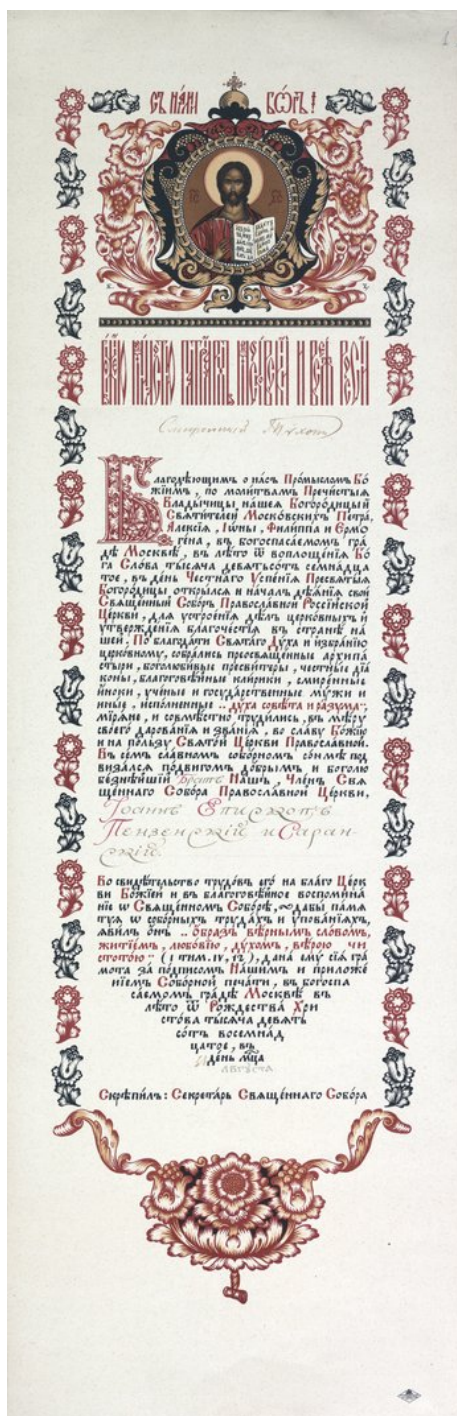 1
Съ на́ми Бг҃ъ!
Бж҃їею млⷭ҇тїю патрїархъ московскїй и всеѧ̀ рѡссі́и
Смиренный Тихонъ
Благодѣ́ющимъ о на́съ Про́мысломъ Бо́
жїимъ, по моли́твамъ Пречи́стыя
Влады́чицы на́шея Богоро́дицы и
Святи́телей Моско́вскихъ Петра́,
Але́ксїя, Іѡ́ны, Фили́ппа и Ермо
ге́на, въ богоспаса́емомъ гра́
дѣ Москвѣ̀, въ лѣ́то ѿ воплоще́нїя Бо́
га Сло́ва ты́сяча девятьсо́тъ семна́дца
тое, въ де́нь Честна́го Успе́нїя Пресвяты́я
Богоро́дицы откры́лся и нача́лъ дѣя́нїя свои̑
Свяще́нный Собо́ръ Правосла́вной Россі́йской
Це́ркви, для устрое́нїя дѣ́лъ церко́вныхъ и
утвержде́нїя благоче́стїя въ странѣ̀ на́
шей. По благода́ти Свята́го Ду́ха и избра́нїю
церко́вному, собра́лись преосвяще́нные архипа́
стыри, боголюби́вые пресви́теры, честны́е дїа́
коны, благоговѣ́йные кли́рики, смире́нные
и́ноки, уче́ные и госуда́рственные мужи и
иные, испо́лненные „ду́ха совѣ́та и ра́зума“,
міря́не, и совмѣ́стно труди́лись, въ мѣ́ру
своего дарова́нїя и зва́нїя, во сла́ву Бо́жїю
и на по́льзу Свято́й Це́ркви Правосла́вной.
Въ се́мъ сла́вномъ собо́рномъ со́нмѣ под
виза́лся по́двигомъ до́брымъ и боголю
бе́знѣйшїй Братъ На́шъ, Чле́нъ Свя
ще́ннаго Собо́ра Правосла́вной Це́ркви,
Іоаннъ Епископъ
Пензенскій и Саран-
скій.
Во свидѣ́тельство трудо́въ его̀ на бла́го Це́рк
ви Бо́жїей и въ благоговѣ́йное воспомина́
нїе ѡ Свяще́нномъ Собо́рѣ, дабы̀ памя
туя ѡ собо́рныхъ труда́хъ и упова́нїяхъ,
яви́лъ о́нъ „о́бразъ вѣ́рнымъ сло́вомъ,
житїе́мъ, любо́вїю, ду́хомъ, вѣ́рою, чи
стото́ю“ (1 тим. IV, 12), дана̀ ему̀ сїя̀ гра́
мота за по́дписомъ На́шимъ и приложе́
нїемъ Собо́рной печа́ти, въ богоспа
са́емомъ гра́дѣ Москвѣ̀ въ
лѣ́то ѿ Рождества̀ Хри
сто́ва ты́сяча девять
со́тъ восемна́д
цатое, въ
де́нь мц҃а
августа
Скрѣпи́лъ: Секрета́рь Свяще́ннаго Собо́ра